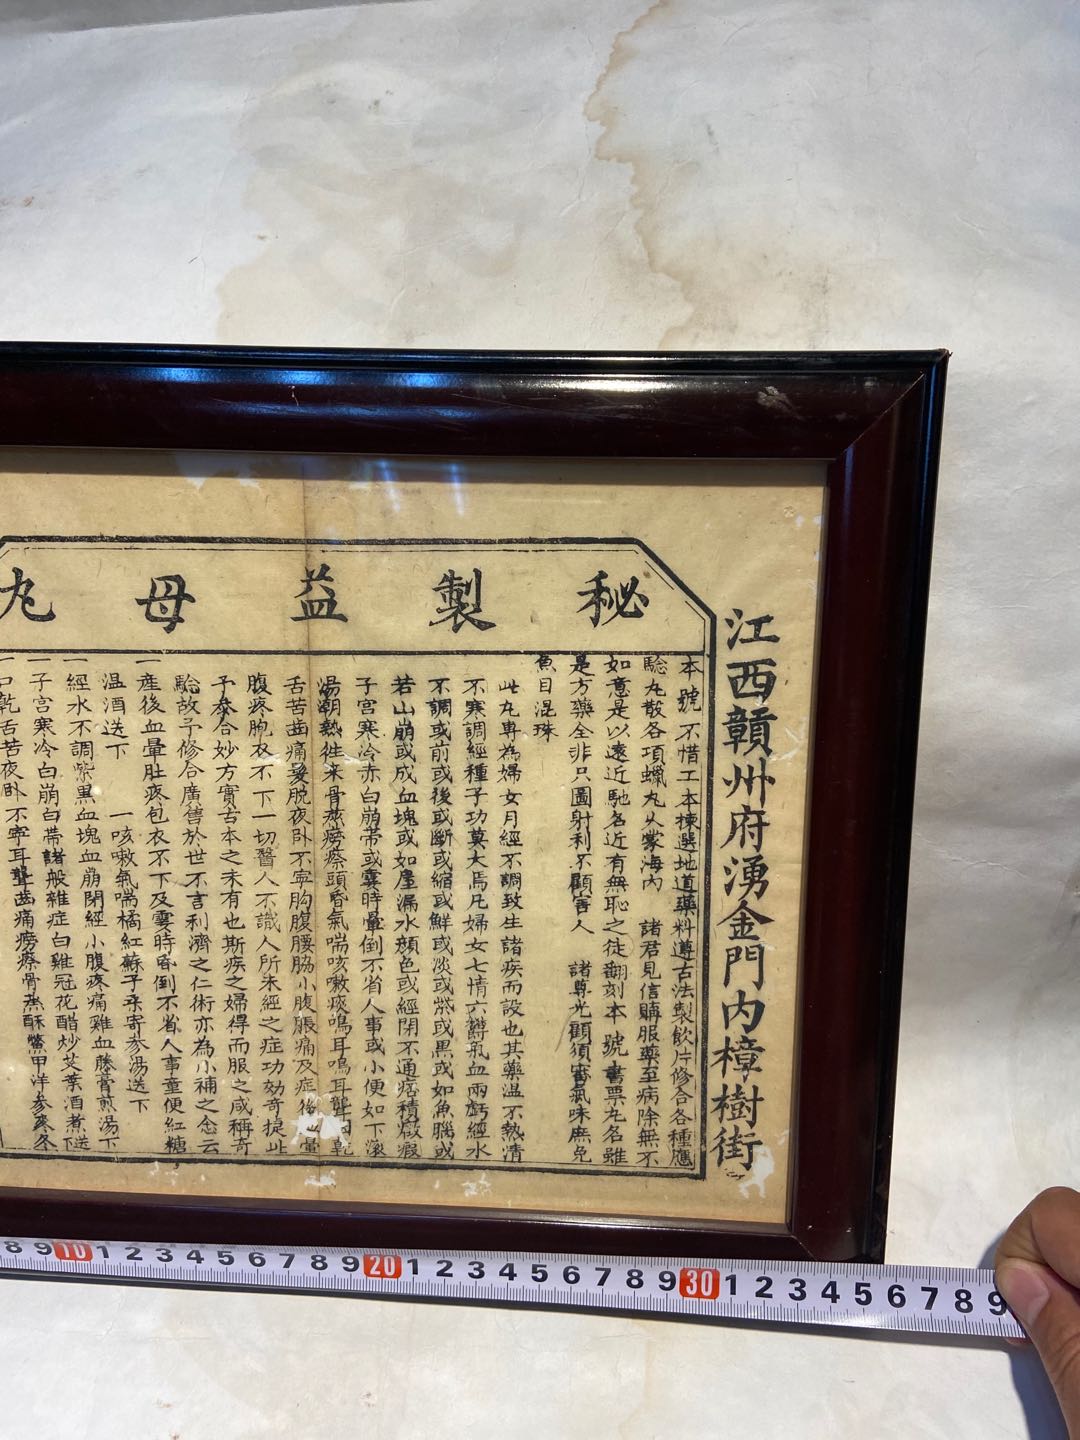 秘製益母丸
江西贛州府湧金門内樟樹街
本號不惜工本楝選地道藥料遵古法製飲片修合各種應
驗丸散各項蠟丸乆蒙海内 諸君見信購服藥至病除無不
如意是以遠近馳名近有無恥之徒翻刻本號書票丸名雖
是方藥全非只圖射利不顧害人 諸尊光顧須審氣味庶免
魚目混珠
此丸專為婦女月經不調致生諸疾而設也其藥温不熱清
不寒調經種子功莫大焉凡婦女七情六欝氣血兩虧經水
不調或前或後或斷或縮或鮮或淡或紫或黑或如魚腦或
若山崩或成血塊或如屋漏水頻色或經閉不通痞積癥瘕
子宫寒冷赤白崩帶或霎時暈倒不省人事或小便如下溺
湯潮熱徃來骨蒸癆瘵頭昏氣喘咳嗽痰鳴耳鳴耳聾口乾
舌苦齒痛髮脱夜卧不寧胸腹腰脇小腹脹痛及症後血暈
腹疼胞衣不下一切醫人不識人所未經之症功効奇提此
予叅合妙方實古本之未有也斯疾之婦得而服之咸稱奇
驗故予修合廣售於世不言利濟之仁術亦為小補之念云
一產後血暈肚疼包衣不下及霎時昏倒不省人事童便紅糖
温酒送下 一咳嗽氣喘橘紅蘇子桒寄参湯送下
一經水不調紫黑血塊血崩閉經小腹疼痛雞血藤膏煎湯下
一子宫寒冷白崩白帶諸般雜症白雞冠花醋炒艾葉酒煮送
一口乾舌苦夜卧不寧耳聾齒痛癆瘵骨蒸酥鱉甲洋参麥冬
8 9 10 1 2 3 4 5 6 7 8 9 20 1 2 3 4 5 6 7 8 9 30 1 2 3 4 5 6 7 8 9